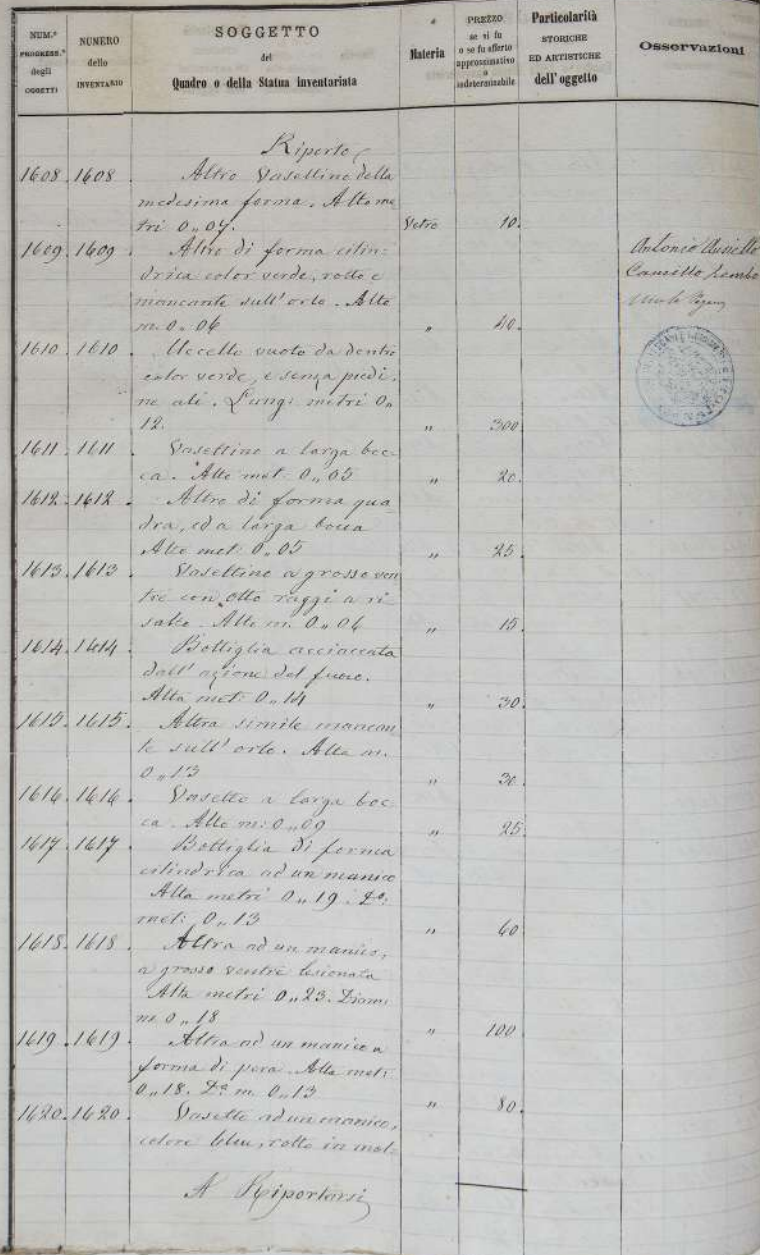 NUM.° PROGRESS.° degli OGGETTI
NUMERO dello INVENTARIO
SOGGETTO del Quadro o della Statua inventariata
Materia
PREZZO se vi fu o se fu offerto approssimativo o indeterminabile
Particolarità STORICHE ED ARTISTICHE dell'oggetto
Osservazioni
Riporto
1608. 1608. Altro Vasellino della
medesima forma. Alto me
tri 0,,07. Vetro 10.
1609. 1609. Altro di forma cilin=
drica color verde, rotto e
mancante sull'orlo. Alto
m. 0,,06 " 40.
Antonio Ausiello
1610. 1610. Uccello vuoto da dentro
color verde, e senza piedi,
ne ali. Lungi metri 0,,
12. " 300
1611. 1611. Vasettino a larga boc=
ca. Alto met: 0,,05 " 20.
1612. 1612. Altro di forma qua
dra, ed a larga bocca
Alto met: 0,,05 " 25.
1613. 1613. Vasettino a grosso ven
tre con otto raggi a ri
salto. Alto m. 0,,06 " 15.
1614. 1614. Bottiglia acciaccata
dall'azione del fuoco.
Alta met: 0,,14 " 30.
1615. 1615. Altra simile mancan
te sull'orlo. Alta m.
0,,13 " 30.
1616. 1616. Vasetto a larga boc
ca. Alto m: 0,,09 " 25.
1617. 1617. Bottiglia di forma
cilindrica ad un manico
Alta metri 0,,19. D°:
met: 0,,13 " 60
1618. 1618. Altra ad un manico,
a grosso ventre lesionata
Alta metri 0,,23. Diam:
m. 0,,18 " 100.
1619. 1619. Altra ad un manico a
forma di pera. Alta met:
0,,18. D° m. 0,,13 " 80.
1620. 1620. Vasetto ad un manico,
colore bleu, rotto in mol=
A Riportarsi